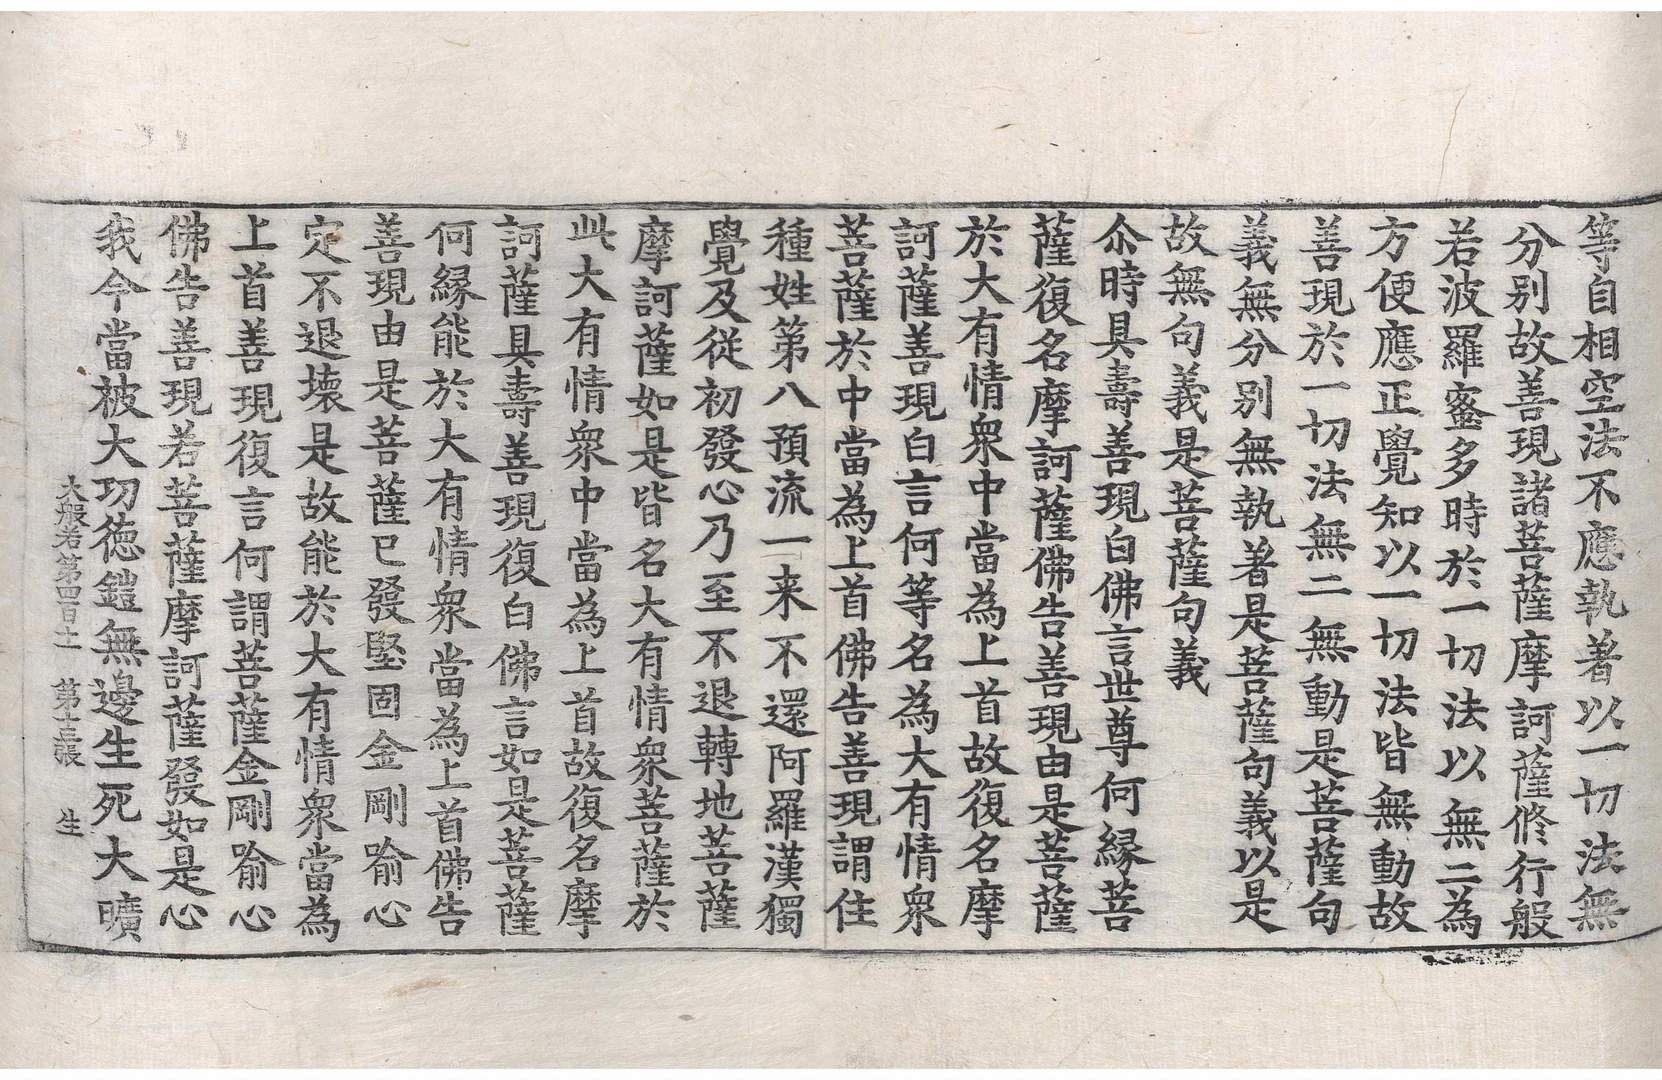 等自相空法不應執著以一切法無
分別故善現諸菩薩摩訶薩修行般
若波羅蜜多時於一切法以無二為
方便應正覺知以一切法皆無動故
善現於一切法無二無動是菩薩句
義無分別無執著是菩薩句義以是
故無句義是菩薩句義
尒時具壽善現白佛言世尊何緣菩
薩復名摩訶薩佛告善現由是菩薩
於大有情衆中當為上首故復名摩
訶薩善現白言何等名為大有情衆
菩薩於中當為上首佛告善現謂住
種姓第八預流一来不還阿羅漢獨
覺及從初發心乃至不退轉地菩薩
摩訶薩如是皆名大有情衆菩薩於
此大有情衆中當為上首故復名摩
訶薩具壽善現復白佛言如是菩薩
何緣能於大有情衆當為上首佛告
善現由是菩薩已發堅固金剛喻心
定不退壊是故能於大有情衆當為
上首善現復言何謂菩薩金剛喻心
佛告善現若菩薩摩訶薩發如是心
我今當被大功徳鎧無邊生死大曠
大般若第四百十一 第十三張 生